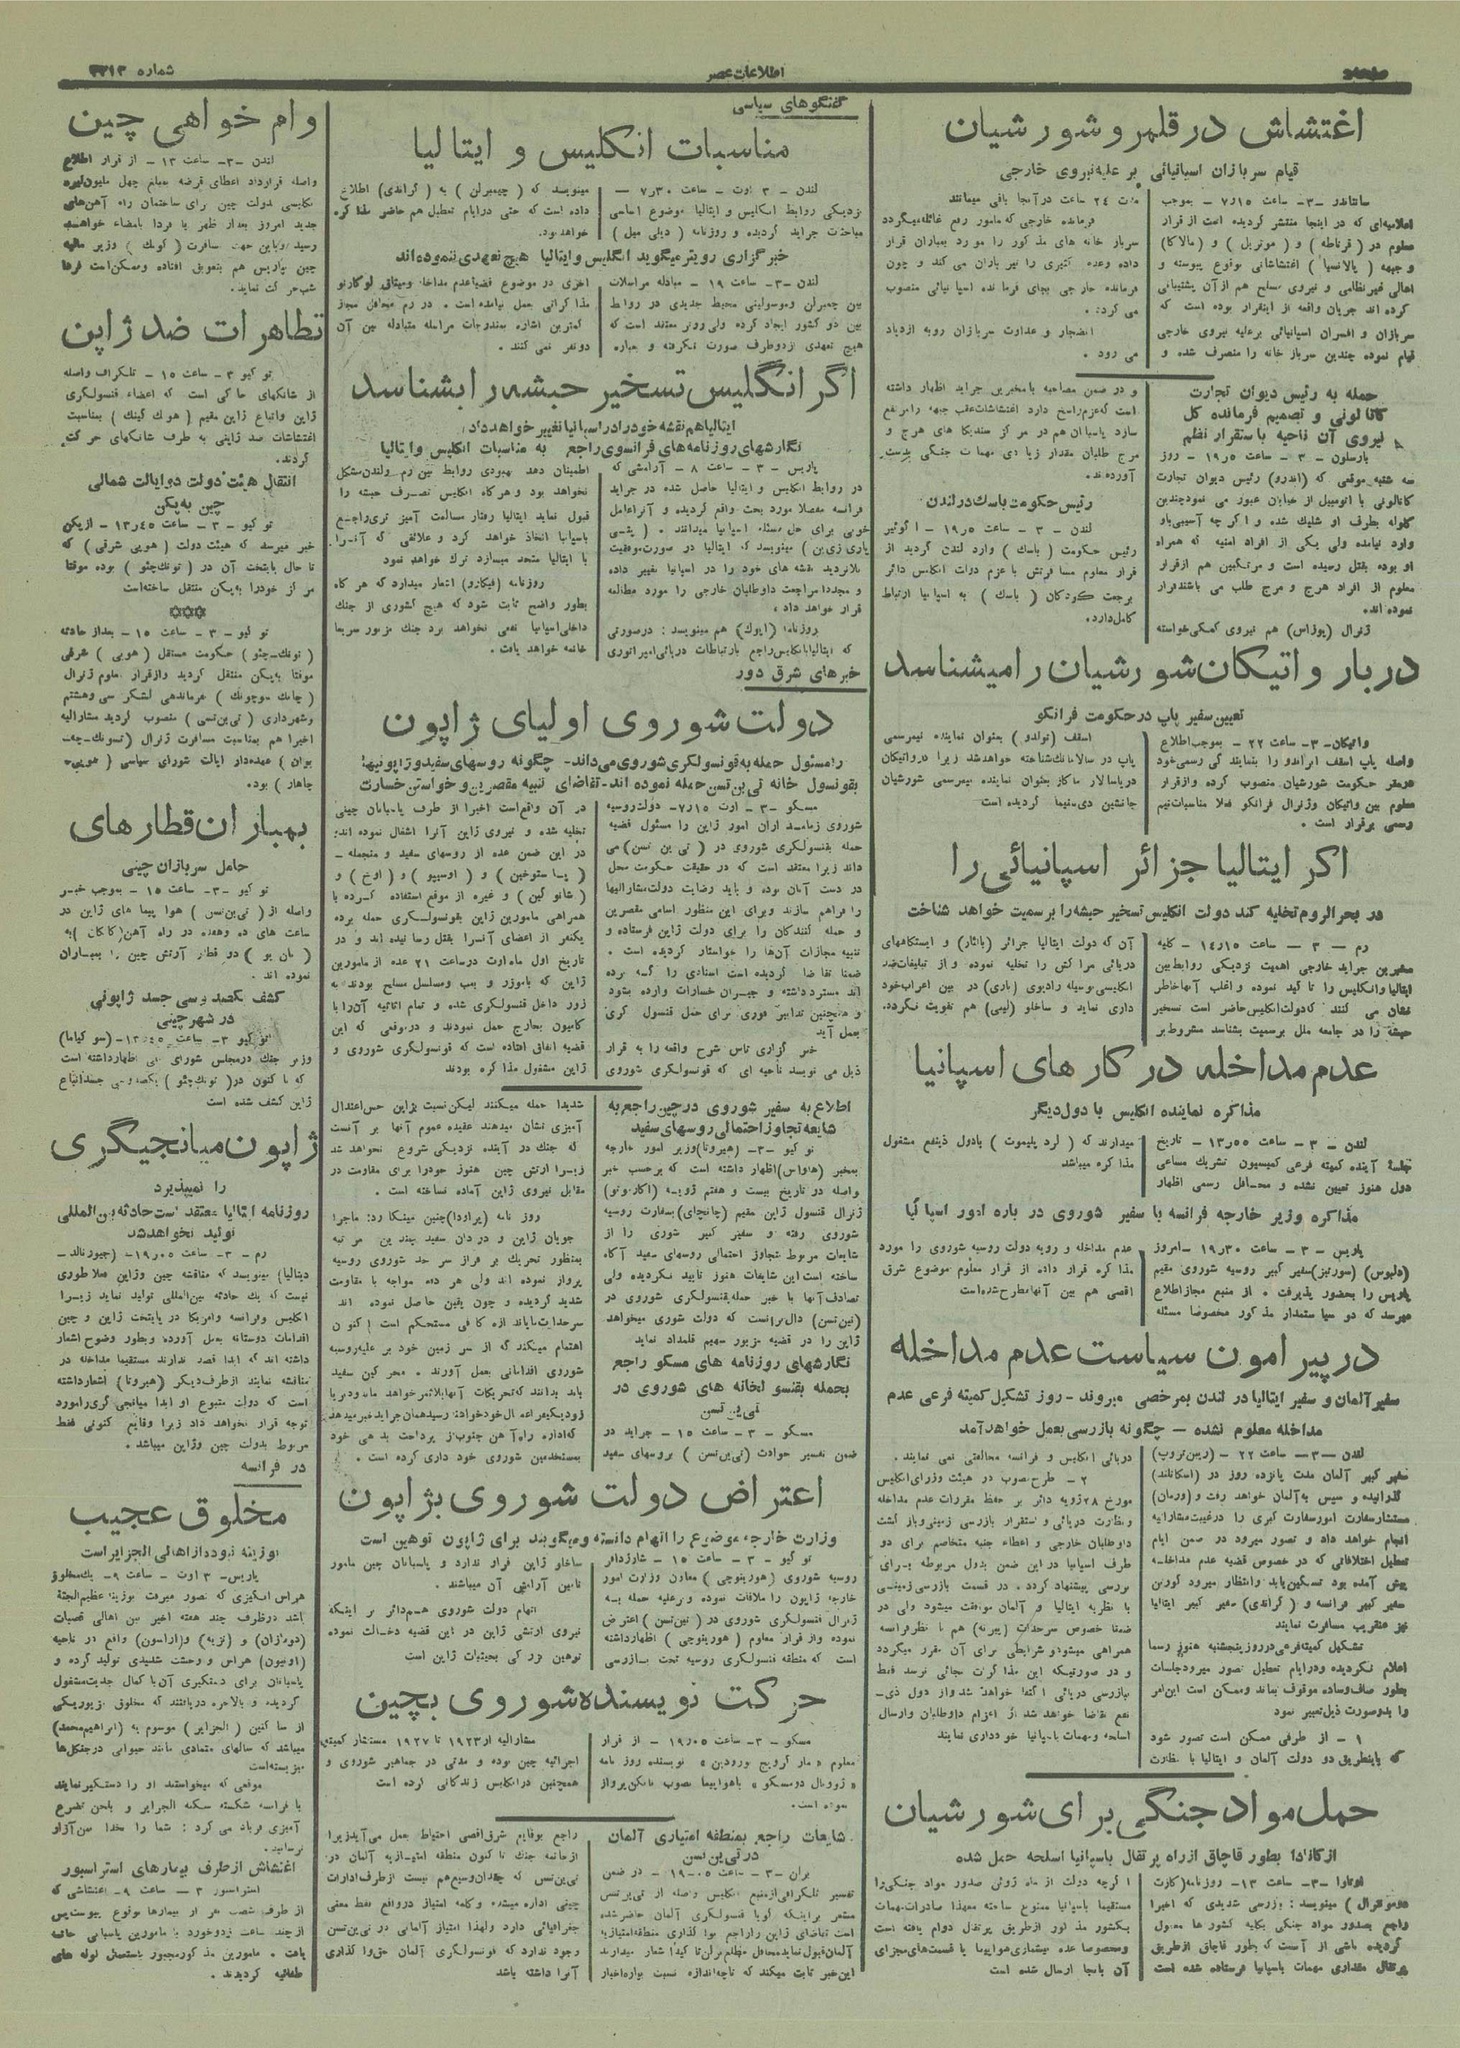 شماره ۳۳۱۳
اطلاعات عصر
اغتشاش در قلمرو شورشیان
قیام سربازان اسپانیائی بر علیه نیروی خارجی
سانتاندر -۳- ساعت ۷٫۱۵ - بموجب
اعلامیه‌ای که در اینجا منتشر گردیده است از قرار
معلوم در ( قرناطه ) و ( موتریل ) و (مالاکا)
و جبهه ( یالانسیا ) اغتشاشاتی بوقوع پیوسته و
اهالی غیرنظامی و نیروی مسلح هم از آن پشتیبانی
کرده اند جریان واقعه از اینقرار بوده است که
سربازان و افسران اسپانیائی برعلیه نیروی خارجی
قیام نموده چندین سرباز خانه را متصرف شده و
مدت ۲۴ ساعت در آنجا باقی میمانند
فرمانده خارجی که مامور رفع غائله میگردد
سرباز خانه های مذکور را مورد بمباران قرار
داده وعده کثیری را تیر باران می کند و چون
فرمانده خارجی بجای فرمانده اسپانیائی منصوب
می گردد.
انضجار و عداوت سربازان روبه ازدیاد
می رود .
حمله به رئیس دیوان تجارت
کاتالونی و تصمیم فرمانده کل
نیروی آن ناحیه باستقرار نظم
بارسلون - ۳ - ساعت ۱۹٫۵ - روز
سه شنبه موقعی که (اندرو) رئیس دیوان تجارت
کاتالونی با اتومبیل از خیابان عبور می نمود چندین
گلوله بطرف او شلیک شده و اگر چه آسیبی باو
وارد نیامده ولی یکی از افراد امنیه که همراه
او بوده بقتل رسیده است و مرتکبین هم از قرار
معلوم از افراد هرج و مرج طلب می باشند فرار
نموده اند.
ژنرال (پوزاس) هم نیروی کمکی خواسته
و در ضمن مصاحبه با مخبرین جراید اظهار داشته
است که عزم راسخ دارد اغتشاشات عقب جبهه را مرتفع
سازد پاسبانان هم در مرکز سندیکا های هرج و
مرج طلبان مقدار زیادی مهمات جنگی بدست
آورده‌ند.
رئیس حکومت باسک در لندن
لندن - ۳ - ساعت ۱۹٫۵ - اگوئیر
رئیس حکومت ( باسک ) وارد لندن گردید از
قرار معلوم مسافرتش با عزم دولت انکلیس دائر
برجعت کودکان ( باسک ) به اسپانیا ارتباط
کامل دارد.
دربار واتیکان شورشیان را میشناسد
تعیین سفیر پاپ در حکومت فرانکو
واتیکان- ۳- ساعت ۲۲ - بموجب اطلاع
واصله پاپ اسقف انراندرو را بنمایندگی رسمی خود
در مقر حکومت شورشیان منصوب کرده و از قرار
معلوم بین واتیکان و ژنرال فرانکو فعلا مناسبات نیم
رسمی برقرار است .
اسقف (تولدو) بعنوان نماینده نیمرسمی
پاپ در سالامانک شناخته خواهد شد زیرا در واتیکان
دریاسالار ماکاز بعنوان نماینده نیمرسمی شورشیان
جانشین دی‌نیما گردیده است
اگر ایتالیا جزائر اسپانیائی را
در بحر الروم تخلیه کند دولت انکلیس تسخیر حبشه را برسمیت خواهد شناخت
رم - ۳ - ساعت ۱۴٫۱۵ - کلیه
مخبرین جراید خارجی اهمیت نزدیکی روابط بین
ایتالیا و انکلیس را تأکید نموده و اغلب آنها خاطر
نشان می کنند که دولت انکلیس حاضر است تسخیر
حبشه را در جامعه ملل برسمیت بشناسد مشروط بر
آن که دولت ایتالیا جزائر (بالئار) و ایستگاههای
دریائی مراکش را تخلیه نموده و از تبلیغات ضد
انکلیسی بوسیله رادیوی (باری) در بین اعراب خود
داری نماید و ساخلو (لیبی) هم تقویت نگردد.
عدم مداخله در کار های اسپانیا
مذاکره نماینده انکلیس با دول دیگر
لندن - ۳ - ساعت ۱۳٫۵۵ - تاریخ
جلسهٔ آینده کمیته فرعی کمیسیون تشریک مساعی
دول هنوز تعیین نشده و محافل رسمی اظهار
میدارند که ( لرد پلیموت ) بادول ذینفع مشغول
مذاکره میباشد
مذاکره وزیر خارجه فرانسه با سفیر شوروی در باره امور اسپانیا
پاریس - ۳ - ساعت ۱۹٫۳۰ -امروز
(دلبوس) (سوریتز) سفیر کبیر روسیه شوروی مقیم
پاریس را بحضور پذیرفت . از منبع مجاز اطلاع
میرسد که دو سیاستمدار مذکور مخصوصا مسئله
عدم مداخله و رویه دولت روسیه شوروی را مورد
مذاکره قرار داده از قرار معلوم موضوع شرق
اقصی هم بین آنها مطرح شده است
در پیرامون سیاست عدم مداخله
سفیر آلمان و سفیر ایتالیا در لندن بمرخصی میروند - روز تشکیل کمیته فرعی عدم
مداخله معلوم نشده - چگونه بازرسی بعمل خواهد آمد
لندن -۳- ساعت ۲۲ - (ریبن تروپ)
سفیر کبیر آلمان مدت پانزده روز در (اسکاتلند)
گذرانیده و سپس به آلمان خواهد رفت و (ورمان)
مستشار سفارت امور سفارت کبری را در غیبت مشارالیه
انجام خواهد داد و تصور میرود در ضمن ایام
تعطیل اختلافاتی که در خصوص قضیه عدم مداخله
پیش آمده بود تسکین یابد و انتظار میرود کوربن
سفیر کبیر فرانسه و ( گراندی) سفیر کبیر ایتالیا
نیز عنقریب مسافرت نمایند
تشکیل کمیته فرعی در روز پنجشنبه هنوز رسما
اعلام نگردیده و در ایام تعطیل تصور میرود جلسات
بطور صاف و ساده موقوف بماند و ممکن است این امر
را بدو صورت ذیل تعبیر نمود
۱ - از طرفی ممکن است تصور شود
که باینطریق دو دولت آلمان و ایتالیا با نظارت
دریائی انکلیس و فرانسه مخالفتی نمی نمایند.
۲ - طرح مصوب در هیئت وزرای انکلیس
مورخ ۲۸ ژویه دائر بر حفظ مقررات عدم مداخله
و نظارت دریائی و استقرار بازرسی زمینی و بازگشت
داوطلبان خارجی و اعطاء جنبه متخاصم برای دو
طرف اسپانیا در این ضمن بدول مربوطه برای
بررسی پیشنهاد گردد . در قسمت بازرسی زمینی
با نظریه ایتالیا و آلمان موافقت میشود ولی در
ضمنا خصوص سرحدات (پیرنه) هم با نظر فرانسه
همراهی میشود و شرایطی برای آن مقرر میگردد
و در صورتیکه این مذاکرات بجائی نرسد فقط
ببازرسی دریائی اکتفا خواهد شد و از دول ذی-
نفع تقاضا خواهد شد از اعزام داوطلبان و ارسال
اسلحه و مهمات باسپانیا خودداری نمایند
حمل مواد جنگی برای شورشیان
از کانادا بطور قاچاق از راه پرتقال باسپانیا اسلحه حمل شده
اوتاوا -۳- ساعت ۱۳- روزنامه (کازت
دومونترال ) مینویسد: بررسی شدیدی که اخیرا
راجع بصدور مواد جنگی بکلیه کشور ها معمول
گردیده ناشی از آنست که بطور قاچاق از طریق
پرتقال مقداری مهمات باسپانیا فرستاده شده است
اگرچه دولت از ماه ژوئن صدور مواد جنگی را
مستقیما باسپانیا ممنوع ساخته معهذا صادرات مهمات
بکشور مذکور از طریق پرتقال دوام یافته است
و مخصوصا عده بیشماری هواپیما با قسمت های مجزای
آن بآنجا ارسال شده است
گفتگوهای سیاسی
مناسبات انکلیس و ایتالیا
لندن - ۳ اوت - ساعت ۷٫۳۰ -
نزدیکی روابط انکلیس و ایتالیا موضوع اساسی
مباحثات جراید گردیده و روزنامه ( دیلی میل )
مینویسد که ( چمبرلن ) به ( گراندی) اطلاع
داده است که حتی در ایام تعطیل هم حاضر مذاکره
خواهد بود.
خبرگزاری رویتر میگوید انگلیس و ایتالیا هیچ تعهدی ننموده اند
لندن -۳- ساعت ۱۹ - مبادله مراسلات
بین چمبرلن و موسولینی محیط جدیدی در روابط
بین دو کشور ایجاد کرده ولی رویتر معتقد است که
هیچ تعهدی از دو طرف صورت نگرفته و عباره
اخری در موضوع قضیه عدم مداخله و میثاق لوکارنو
مذاکراتی بعمل نیامده است . در رم محافل مجاز
کمترین اشاره بمندرجات مراسله متبادله بین آن
دو نفر نمی کنند .
اگر انگلیس تسخیر حبشه را بشناسد
ایتالیا هم نقشه خود را در اسپانیا تغییر خواهد داد
نگارشهای روزنامه های فرانسوی راجع به مناسبات انکلیس و ایتالیا
پاریس - ۳ - ساعت ۸ - آرامشی که
در روابط انکلیس و ایتالیا حاصل شده در جراید
فرانسه مفصلا مورد بحث واقع گردیده و آنرا عامل
خوبی برای حل مسئله اسپانیا میدانند . ( پتی
پاریزین ) مینویسد که ایتالیا در صورت موفقیت
بلاتردید نقشه های خود را در اسپانیا تغییر داده
و مجددا مراجعت داوطلبان خارجی را مورد مطالعه
قرار خواهد داد ،
روزنامه (ایوک) هم مینویسد : در صورتی
که ایتالیا بانکلیس راجع بارتباطات دریائی امپراتوری
اطمینان دهد بهبودی روابط بین رم و لندن مشکل
نخواهد بود و هرگاه انکلیس تصرف حبشه را
قبول نماید ایتالیا رفتار مسالمت آمیز تری راجع
باسپانیا اتخاذ خواهد کرد و علائقی که آنرا
با ایتالیا متحد میسازد ترک خواهد نمود
روزنامه (فیکارو) اشعار میدارد که هر گاه
بطور واضح ثابت شود که هیچ کشوری از جنك
داخلی اسپانیا نفعی نخواهد برد جنك مزبور سریعا
خاتمه خواهد یافت .
خبرهای شرق دور
دولت شوروی اولیای ژاپون
را مسئول حمله به قونسولگری شوروی میداند- چگونه روسهای سفید و ژاپونیها
بقونسول خانه تی ین تسن حمله نموده اند- تقاضای تنبیه مقصرین و خواستن خسارت
مسکو -۳- اوت ۷٫۱۵- دولت روسیه
شوروی زمامداران امور ژاپن را مسئول قضیه
حمله بقنسولگری شوروی در ( تی ین تسن) می
داند زیرا معتقد است که در حقیقت حکومت محل
در دست آنان بوده و باید رضایت دولت مشارالیها
را فراهم سازند و برای این منظور اسامی مقصرین
و حمله کنندگان را برای دولت ژاپن فرستاده و
تنبیه مجازات آن‌ها را خواستار گردیده است .
ضمنا تقاضا گردیده است اسنادی را که برده
اند مسترد داشته و جبران خسارات وارده بشود
و همچنین تدابیر فوری برای حمل قنسول گری
بعمل آید
خبر گزاری تاس شرح واقعه را به قرار
ذیل می نویسد ناحیه ای که قونسولگری شوروی
در آن واقع است اخیرا از طرف پاسبانان چینی
تخلیه شده و نیروی ژاپن آنرا اشغال نموده اند.
در این ضمن عده از روسهای سفید و منجمله -
( پاستوخین ) و ( اوسیپو ) و ( اوخ ) و
( شانوکین ) و غیره از موقع استفاده کرده با
همراهی مامورین ژاپن بقونسولگری حمله برده
یکنفر از اعضای آنسرا بقتل رسانیده اند و در
تاریخ اول ماه اوت در ساعت ۲۱ عده از مامورین
ژاپن که با موزر و بمب و مسلسل مسلح بودند به
زور داخل قنسولگری شده و تمام اثاثیه آن را با
کامیون بخارج حمل نمودند و در موقعی که این
قضیه اتفاق افتاده است که قونسولگری شوروی و
ژاپن مشغول مذاکره بودند
اطلاع به سفیر شوروی در چین راجع به
شایعه تجاوز احتمالی روسهای سفید
توکیو -۳- (هیروتا) وزیر امور خارجه
بمخبر (هاواس) اظهار داشته است که برحسب خبر
واصله در تاریخ بیست و هفتم ژویه (اکاموتو)
ژنرال قنسول ژاپن مقیم (چانچای) بسفارت روسیه
شوروی رفته و سفیر کبیر شوری را از
شایعات مربوط بتجاوز احتمالی روسهای سفید آگاه
ساخته است این شایعات هنوز تایید نگردیده ولی
تصادف آنها با خبر حمله بقنسولگری شوروی در
(تین تسن) دال براینست که دولت شوری میخواهد
ژاپن را در قضیه مزبور سهیم قلمداد نماید
نگارشهای روزنامه های مسکو راجع
بحمله بقنسولخانه های شوروی در
تی ین تسن
مسکو - ۳ - ساعت ۱۵ - جراید در
ضمن تفسیر حوادث (تی ین تسن ) بروسهای سفید
شدیدا حمله میکنند لیکن نسبت بژاپن حس اعتدال
آمیزی نشان میدهند عقیده عموم آنها بر آنست
که جنك در آینده نزدیکی شروع نخواهد شد
زیسرا ارتش چین هنوز خود را برای مقاومت در
مقابل نیروی ژاپن آماده نساخته است .
روز نامه (پراودا) چنین مینگارد: ماجرا
جویان ژاپن و دزدان سفید چندین مرتبه
بمنظور تحریك بر فراز سر حد شوروی روسیه
پرواز نموده اند ولی هر دفعه مواجه با مقاومت
شدید گردیده و چون یقین حاصل نموده اند
سرحدات ما باندازه کافی مستحکم است اکنون
اهتمام میکنند که از سر زمین خود بر علیه روسیه
شوروی اقداماتی بعمل آورند . محرکین سفید
باید بدانند که تحریکات آنها بلااثر خواهد ماند و دیر یا
زود بکیفر اعمال خود خواهند رسید همان جراید خبر میدهد
که اداره راه آهن جنوب از پرداخت بدهی خود
بمستخدمین شوروی خود داری کرده است .
اعتراض دولت شوروی بژاپون
وزارت خارجه موضوع را اتهام دانسته و میگوید برای ژاپون توهین است
توکیو - ۳ - ساعت ۱۵ - شارژدافر
روسیه شوروی (هورینوچی ) معاون وزارت امور
خارجه ژاپون را ملاقات نموده و برعلیه حمله به
ژنرال قنسولگری شوروی در (تین تسن) اعتراض
نموده و از قرار معلوم ( هورینوچی ) اظهار داشته
است که منطقه قنسولگری روسیه تحت بازرسی
ساخلو ژاپن قرار ندارد و پاسبانان چین مامور
تامین آرامش آن میباشند .
اتهام دولت شوروی هم دائر بر اینکه
نیروی ارتشی ژاپن در این قضیه دخالت نموده
توهین بزرگی بحیثیات ژاپن است
حرکت نویسنده شوروی بچین
مسکو - ۳ - ساعت ۱۹٫۰۵ - از قرار
معلوم « مارکوویچ بورودین » نویسنده روز نامه
« ژورنال دومسکو » باهواپیما بصوب نانکن پرواز
نموده است .
مشارالیه از ۱۹۲۳ تا ۱۹۲۷ مستشار کمیته
اجرائیه چین بوده و مدتی در جماهیر شوروی و
همچنین در انکلیس زندگانی کرده است
شایعات راجع بمنطقه امتیازی آلمان
در تی ین تسن
برلن -۳- ساعت ۱۹٫۰۵ - در ضمن
تفسیر تلگرافی از منبع انکلیس واصله از تی ین تسن
مشعر براینکه گویا قنسولگری آلمان حاضر شده
است تقاضای ژاپن را راجع بواگذاری منطقه امتیازیه
آلمان قبول نماید محافل مطلع برلن تاکیدا اشعار میدارند
این خبر ثابت میکند که تا چه اندازه نسبت بواره اخبار
راجع بوقایع شرق اقصی احتیاط بعمل می آید زیرا
از خاتمه جنك تا کنون منطقه امتیازیه آلمان در
تی ین تسن که چندان وسیع هم نیست از طرف ادارات
چینی اداره میشده و کلمه امتیاز در واقع فقط معنی
جغرافیائی دارد و لهذا امتیاز آلمانی در تی ین تسن
وجود ندارد که قنسولگری آلمان حق واگذاری
آنرا داشته باشد
وام خواهی چین
لندن -۳- ساعت ۱۳ - از قرار اطلاع
واصله قرارداد اعطای قرضه بمبلغ چهل ملیون لیره
انکلیسی بدولت چین برای ساختمان راه آهن‌های
جدید امروز بعداز ظهر یا فردا بامضاء خواهد
رسید و باین جهت مسافرت ( کونك ) وزیر مالیه
چین بپاریس هم بتعویق افتاده و ممکن است فردا
شب حرکت نماید.
تظاهرات ضد ژاپن
توکیو ۳ - ساعت ۱۵ - تلگراف واصله
از شانگهای حاکی است که اعضاء قنسولگری
ژاپن و اتباع ژاپن مقیم ( هونك کینك ) بمناسبت
اغتشاشات ضد ژاپنی به طرف شانگهای حرکت
کردند.
انتقال هیئت دولت دو ایالت شمالی
چین به پکن
توکیو - ۳ - ساعت ۱۳٫۴۵ - از پکن
خبر میرسد که هیئت دولت ( هوپی شرقی ) که
تا حال پایتخت آن در ( تونك چئو ) بوده موقتا
مرکز خود را به پکن منتقل ساخته است
***
توکیو - ۳ - ساعت ۱۵ - بعد از حادثه
( تونك چئو ) حکومت مستقل ( هوپی ) شرقی
موقتا به پکن منتقل گردید و از قرار معلوم ژنرال
( چانك سوچونك ) فرماندهی لشگر سی و هشتم
و شهرداری ( تی ین تسی ) منصوب گردید مشارالیه
اخیرا هم بمناسبت مسافرت ژنرال (تسونك چه
یوان ) عهده‌دار ایالت شورای سیاسی ( هوپی-
چاهار ) بود.
بمباران قطارهای
حامل سربازان چینی
توکیو -۳- ساعت ۱۵ - بموجب خبر
واصله از ( تی ین تسن ) هوا پیما های ژاپن در
ساعت های ده و هفده در راه آهن (کاکان ) به
( مان یو ) دو قطار ارتش چین را بمباران
نموده اند .
کشف یکصد و سی جسد ژاپونی
در شهر چینی
توکیو ۳- ساعت ۱۳٫۴۵- (سوکیاما)
وزیر جنك در مجلس شورای ملی اظهار داشته است
که تا کنون در ( تونك چئو ) یکصد و سی جسد اتباع
ژاپن کشف شده است
ژاپون میانجیگری
را نمیپذیرد
روزنامه ایتالیا معتقد است حادثه بین المللی
تولید نخواهد شد
رم -۳- ساعت ۱۹٫۰۵- (جیورنالد-
دیتالیا) مینویسد که مناقشه چین و ژاپن فعلا طوری
نیست که یك حادثه بین المللی تولید نماید زیسرا
انکلیس و فرانسه و امریکا در پایتخت ژاپن و چین
اقدامات دوستانه بعمل آورده و بطور وضوح اشعار
داشته اند که ابدا قصد ندارند مستقیما مداخله در
مناقشه نمایند از طرف دیگر (هیروتا ) اشعار داشته
است که دولت متبوع او ابدا میانجی گری را مورد
توجه قرار نخواهد داد زیرا وقایع کنونی فقط
مربوط بدولت چین و ژاپن میباشد .
در فرانسه
مخلوق عجیب
بوزینه نبوده از اهالی الجزایر است
پاریس- ۳ اوت - ساعت ۹- یك مخلوق
هراس انگیزی که تصور میرفت بوزینهٔ عظیم الجثهٔ
باشد در ظرف چند هفته اخیر بین اهالی قصبات
(دومازان) و (نزیه) و (اراسون) واقع در ناحیه
(اونیون) هراس و وحشت شدیدی تولید کرده و
پاسبانان برای دستگیری آن با کمال جدیت مشغول
گردیده و بالاخره دریافتند که مخلوق مزبور یکی
از ساکنین ( الجزایر ) موسوم به (ابراهیم محمد)
میباشد که سالهای متمادی مانند حیوانی در جنگل‌ها
میزیسته است
موقعی که میخواستند او را دستگیر نمایند
با فرانسه شکسته سکنه الجزایر و بلحن تضرع
آمیزی فریاد می کرد : شما را بخدا بمن آزار
نرسانید.
اغتشاش از طرف بیمارهای استراسبور
استراسبور ۳ - ساعت ۹- اغتشاشی که
از طرف شصت نفر از بیمارها بوقوع پیوست پس
از چند ساعت زدوخورد با مامورین پاسبانی خاتمه
یافت . مامورین مذکور مجبور باستعمال لوله های
طفائیه گردیدند .